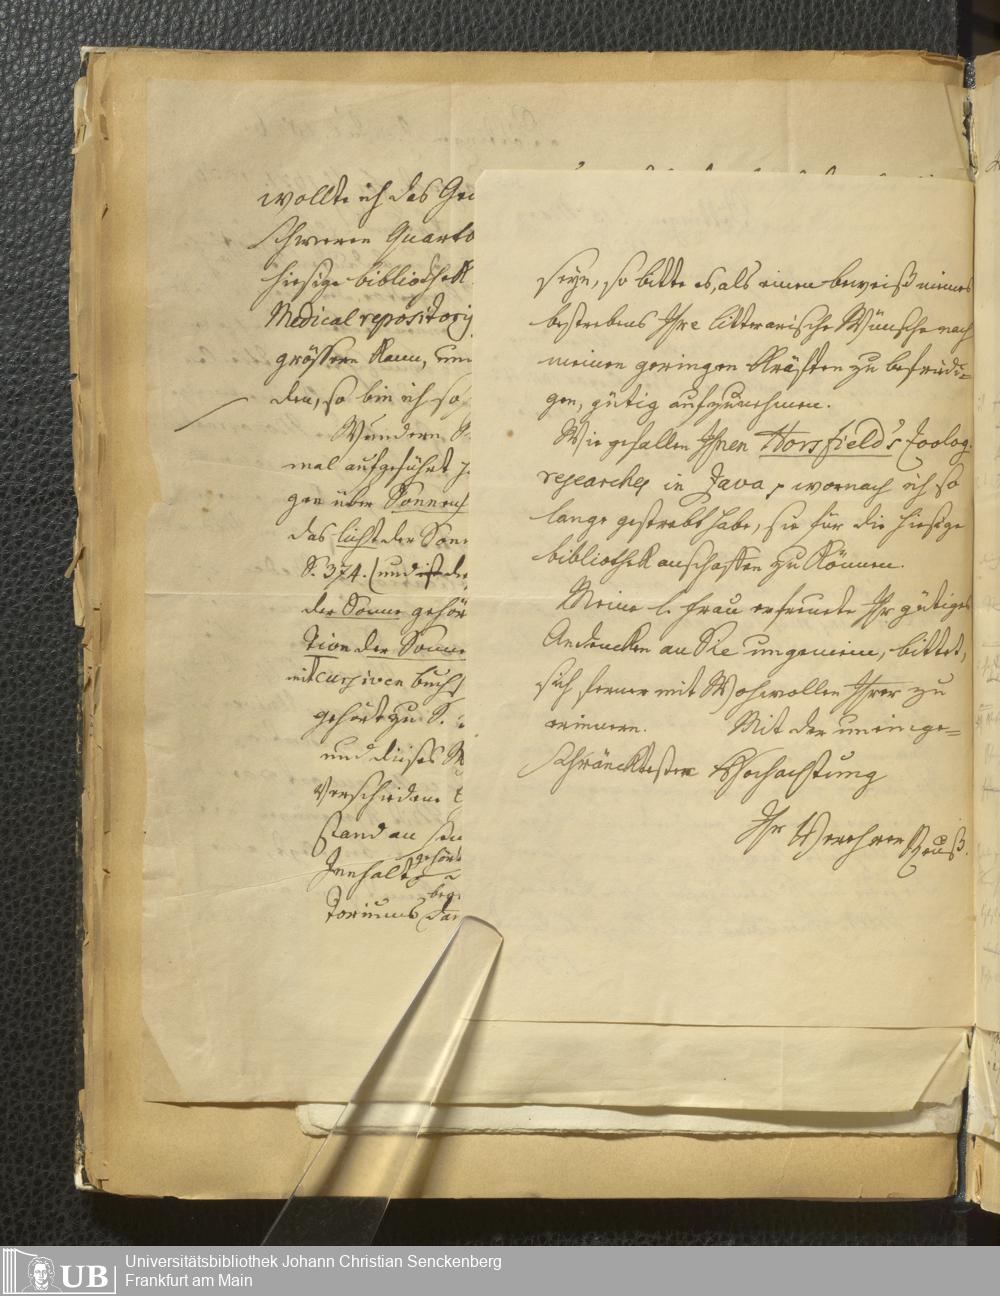 wollte ich das Ge
schweren Quarto
hiesige bibliothek
Medical repository
grössern Raum, und
den, so bin ich so
Wundern S
mal aufgeführt
gen über Sonnen
das licht der Sonn
S. 374. (und ist de
der Sonne gehör
tion der Sonne
mit cursiven buchs
gehört zu S.
und dieses W
Verschiedene
stand an
Innhalts gehört
toriums beg
seyn, so bitte es, als einen beweiß meines
bestrebens Ihre litterarische Wünsche nach
meinen geringen Kräften zu befriedi=
gen, gütig aufzunehmen.
Wie gefallen Ihnen Horsfield's zoolog.
researches in Java, wornach ich so
lange gestrebt habe, sie für die hiesige
bibliothek anschaffen zu können.
Meine l. Frau erfreuete Ihr gütiges
Andencken an Sie ungemein, bittet,
sich ferner mit Wohwollen Ihrer zu
erinnern. Mit der uneinge=
schräncktesten Hochachtung
Ihr Verehrer Reuß.
Universitätsbibliothek Johann Christian Senckenberg
Frankfurt am Main
UB